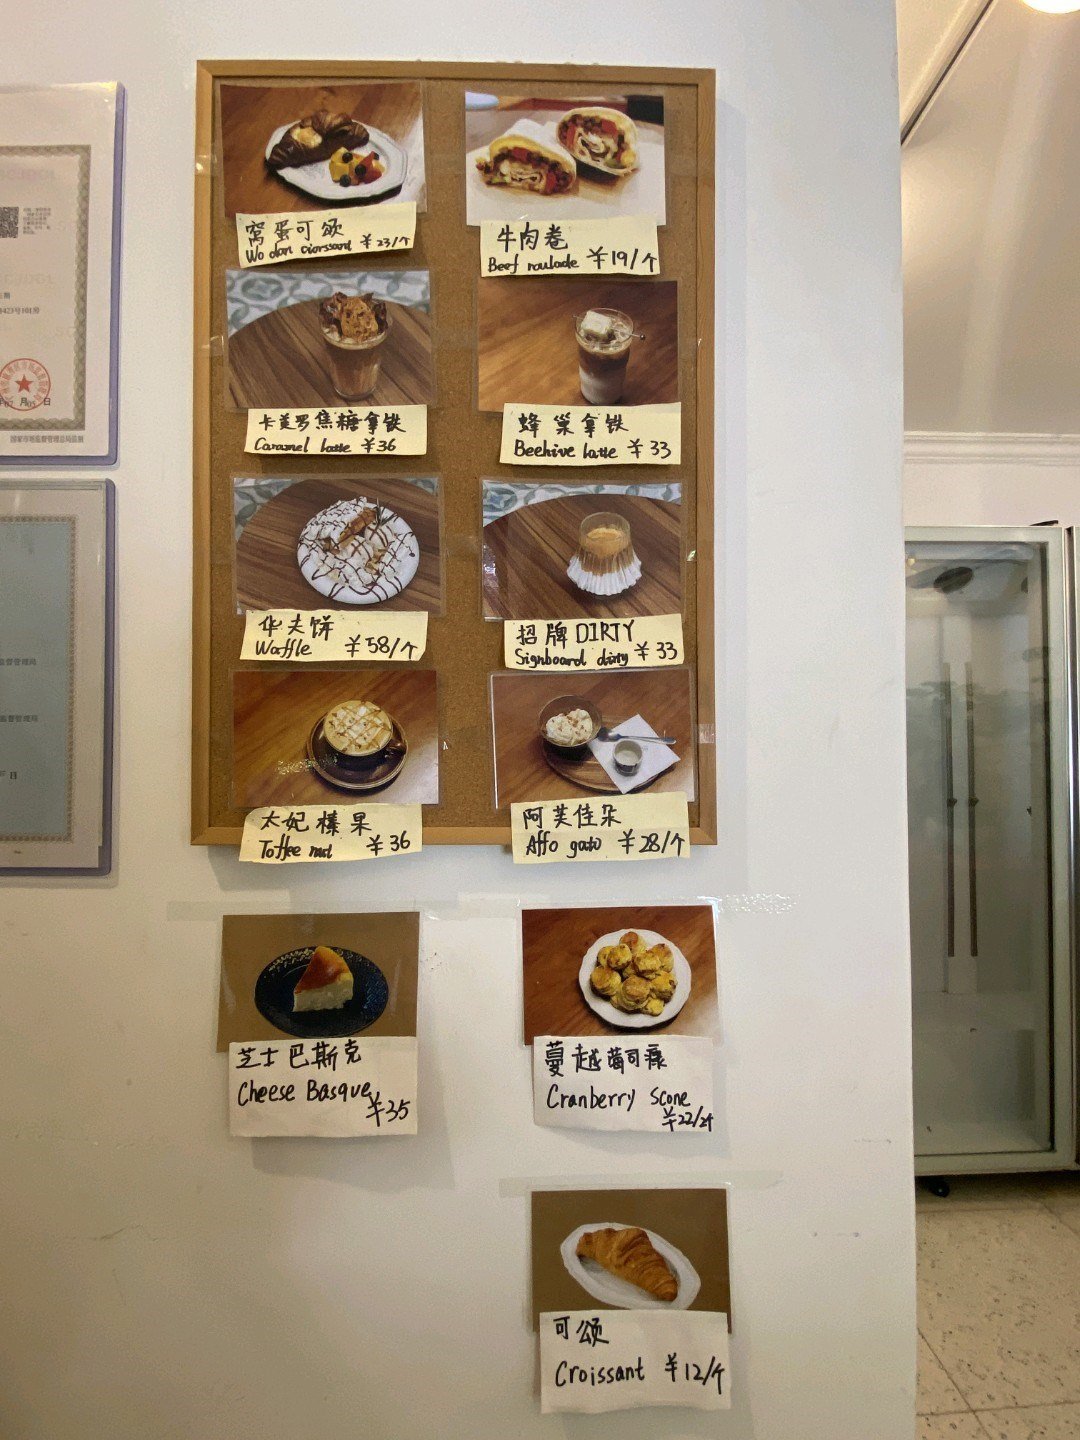 窝蛋可颂
Wo dan ciorssant ¥23/个
牛肉卷
Beef roulade ¥19/个
卡美罗焦糖拿铁
Caramel latte ¥36
蜂巢拿铁
Beehive latte ¥33
华夫饼
Waffle ¥58/个
招牌DIRTY
Signboard dirty ¥33
太妃榛果
Toffee nut ¥36
阿芙佳朵
Affo gato ¥28/个
芝士巴斯克
Cheese Basque
¥35
蔓越莓司康
Cranberry Scone
¥22/2个
可颂
Croissant ¥12/个
国家市场监督管理总局监制